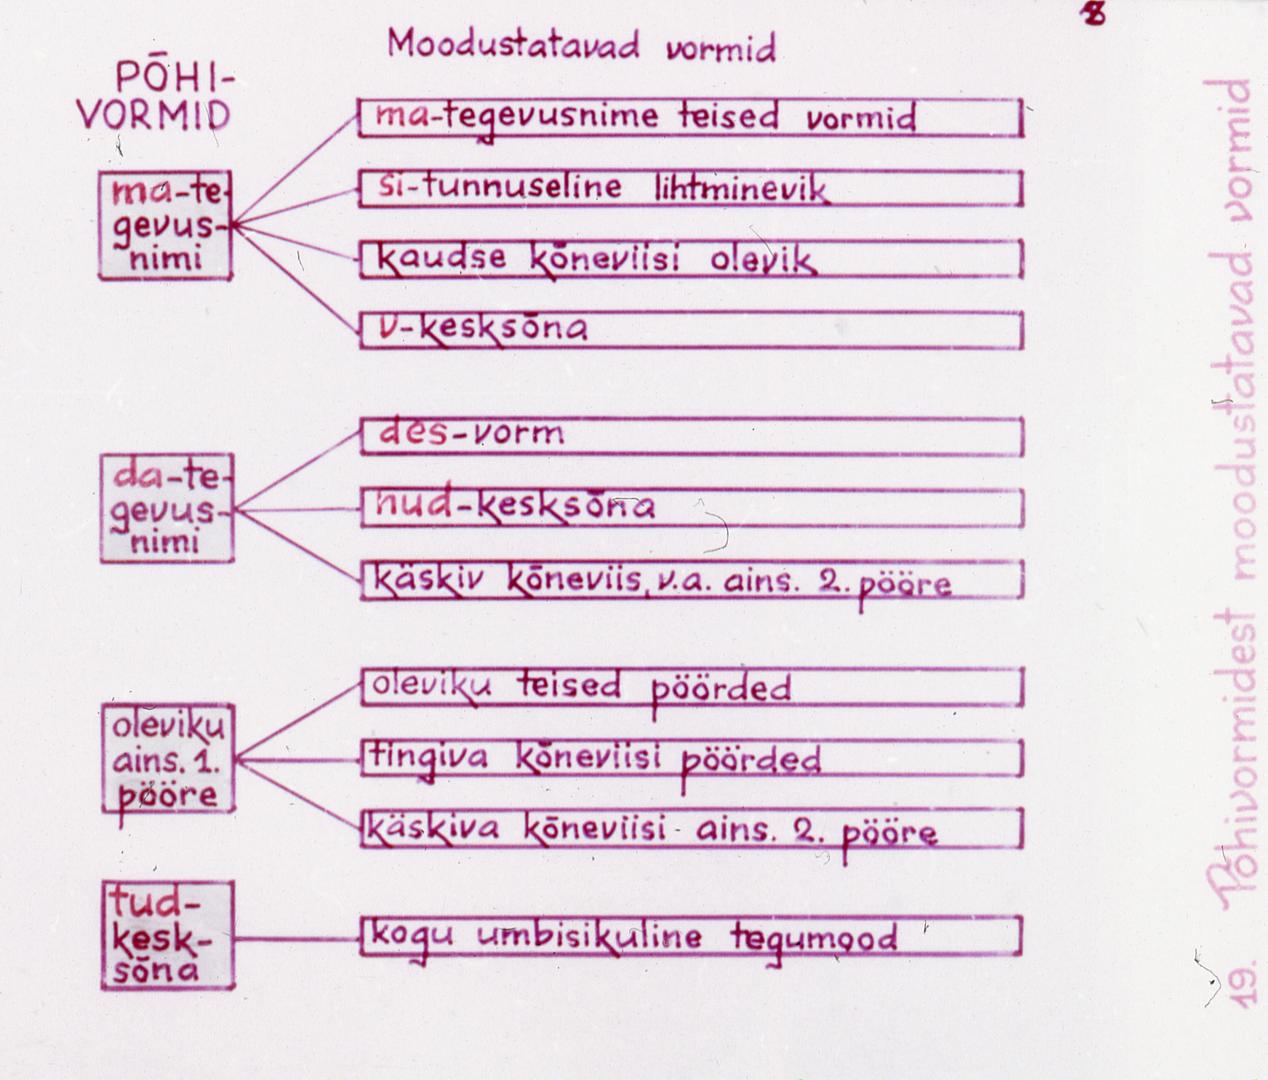 8
Moodustatavad vormid
PÕHI-
VORMID
ma-te-
gevus-
nimi
ma-tegevusnime teised vormid
si-tunnuseline lihtminevik
kaudse kõneviisi olevik
v-kesksõna
da-te-
gevus-
nimi
des-vorm
nud-kesksõna
käskiv kõneviis, v.a. ains. 2. pööre
oleviku
ains. 1.
pööre
oleviku teised pöörded
tingiva kõneviisi pöörded
käskiva kõneviisi ains. 2. pööre
tud-
kesk-
sõna
kogu umbisikuline tegumood
19. Põhivormidest moodustatavad vormid